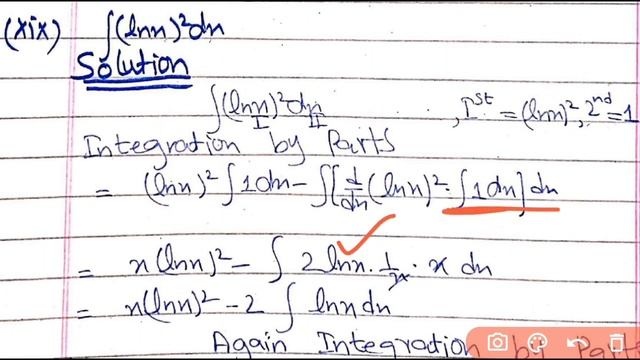 (xix) ∫(lnx)²dx
Solution
∫(lnx)²dx , Iˢᵗ = (lnx)², 2ⁿᵈ = 1
I II
Integration by Parts
= (lnx)² ∫1dx - ∫[d/dx (lnx)² · ∫1dx] dx
= x(lnx)² - ∫ 2lnx · 1/x · x dx
= x(lnx)² - 2 ∫ lnx dx
Again Integration by Parts